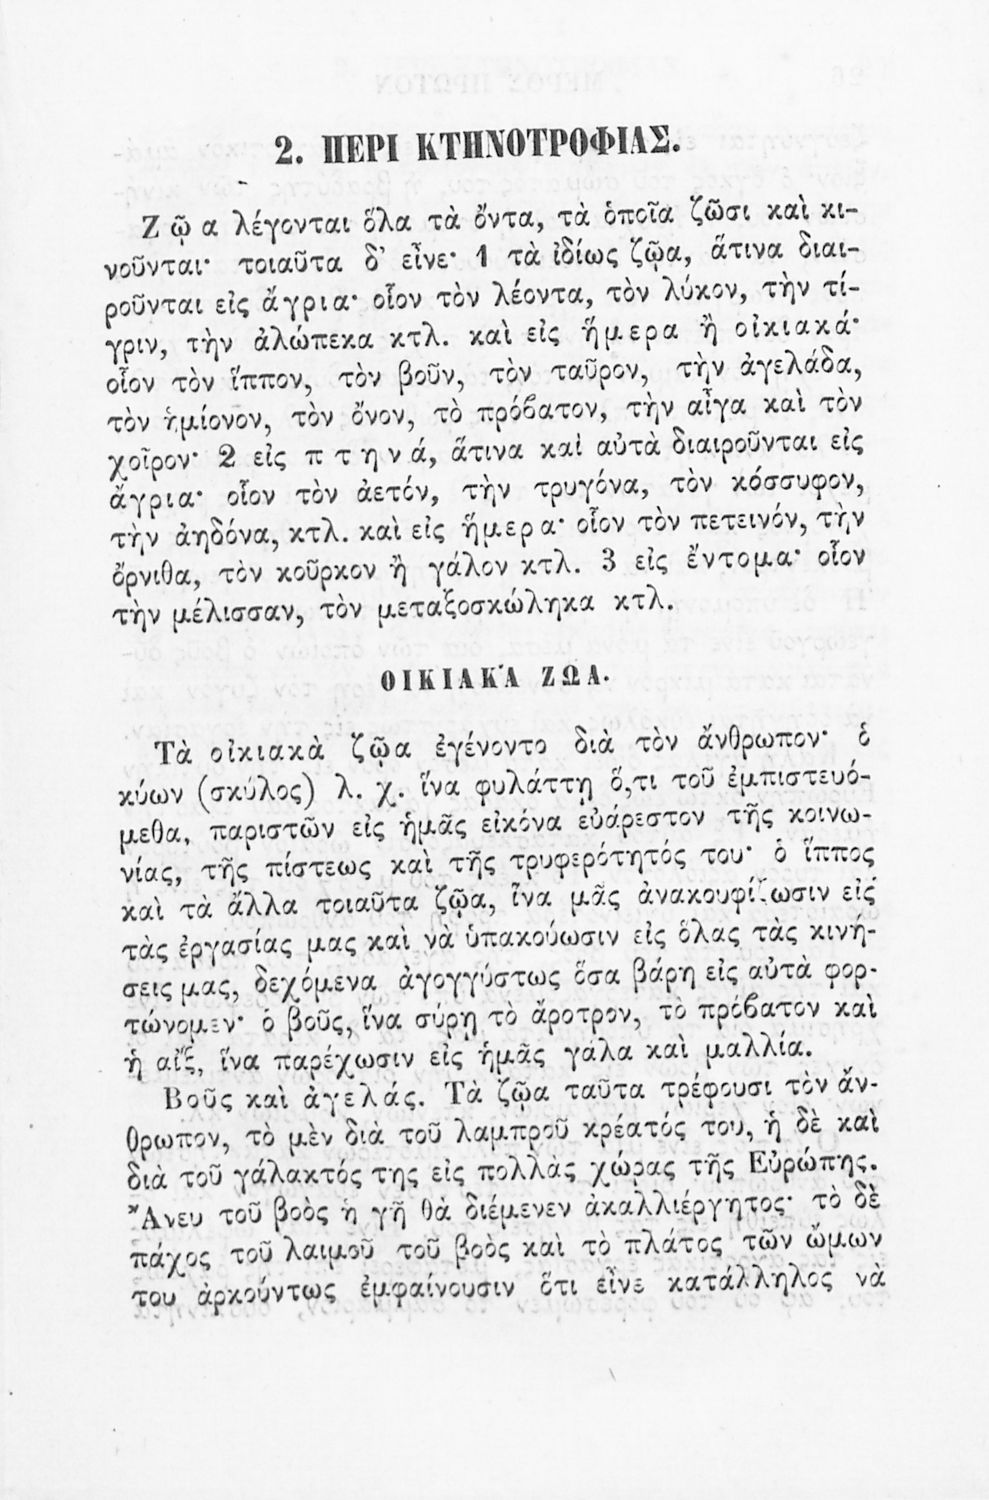 2. ΠΕΡΙ ΚΤΗΝΟΤΡΟΦΙΑΣ.
Ζῷα λέγονται ὅλα τὰ ὄντα, τὰ ὁποῖα ζῶσι καὶ κι-
νοῦνται· τοιαῦτα δ' εἶνε· 1 τὰ ἰδίως ζῷα, ἅτινα διαι-
ροῦνται εἰς ἄγρια· οἷον τὸν λέοντα, τὸν λύκον, τὴν τί-
γριν, τὴν ἀλώπεκα κτλ. καὶ εἰς ἥμερα ἢ οἰκιακά·
οἷον τὸν ἵππον, τὸν βοῦν, τὸν ταῦρον, τὴν ἀγελάδα,
τὸν ἡμίονον, τὸν ὄνον, τὸ πρόβατον, τὴν αἶγα καὶ τὸν
χοῖρον· 2 εἰς πτηνά, ἅτινα καὶ αὐτὰ διαιροῦνται εἰς
ἄγρια· οἷον τὸν ἀετόν, τὴν τρυγόνα, τὸν κόσσυφον,
τὴν ἀηδόνα, κτλ. καὶ εἰς ἥμερα· οἷον τὸν πετεινόν, τὴν
ὄρνιθα, τὸν κοῦρκον ἢ γάλον κτλ. 3 εἰς ἔντομα· οἷον
τὴν μέλισσαν, τὸν μεταξοσκώληκα κτλ.
ΟΙΚΙΑΚΆ ΖΩΑ.
Τὰ οἰκιακὰ ζῷα ἐγένοντο διὰ τὸν ἄνθρωπον· ὁ
κύων (σκύλος) λ. χ. ἵνα φυλάττῃ ὅ,τι τοῦ ἐμπιστευό-
μεθα, παριστῶν εἰς ἡμᾶς εἰκόνα εὐάρεστον τῆς κοινω-
νίας, τῆς πίστεως καὶ τῆς τρυφερότητός του· ὁ ἵππος
καὶ τὰ ἄλλα τοιαῦτα ζῷα, ἵνα μᾶς ἀνακουφίζωσιν εἰς
τὰς ἐργασίας μας καὶ νὰ ὑπακούωσιν εἰς ὅλας τὰς κινή-
σεις μας, δεχόμενα ἀγογγύστως ὅσα βάρη εἰς αὐτὰ φορ-
τώνομεν· ὁ βοῦς, ἵνα σύρῃ τὸ ἄροτρον, τὸ πρόβατον καὶ
ἡ αἴξ, ἵνα παρέχωσιν εἰς ἡμᾶς γάλα καὶ μαλλία.
Βοῦς καὶ ἀγελάς. Τὰ ζῷα ταῦτα τρέφουσι τὸν ἄν-
θρωπον, τὸ μὲν διὰ τοῦ λαμπροῦ κρέατός του, ἡ δὲ καὶ
διὰ τοῦ γάλακτός της εἰς πολλὰς χώρας τῆς Εὐρώπης.
Ἄνευ τοῦ βοὸς ἡ γῆ θὰ διέμενεν ἀκαλλιέργητος· τὸ δὲ
πάχος τοῦ λαιμοῦ τοῦ βοὸς καὶ τὸ πλάτος τῶν ὤμων
του ἀρκούντως ἐμφαίνουσιν ὅτι εἶνε κατάλληλος νὰ